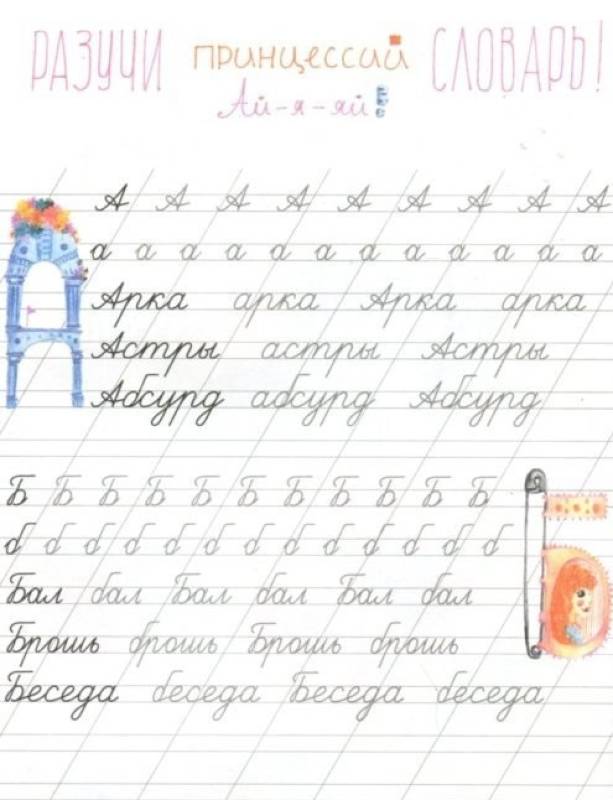 РАЗУЧИ принцессий СЛОВАРЬ!
Ай-я-яй!
А А А А А А А А А
а а а а а а а а а а а а
Арка арка Арка арка
Астры астры Астры
Абсурд абсурд Абсурд
Б Б Б Б Б Б Б Б Б Б Б
б б б б б б б б б б б б б
Бал бал Бал бал Бал бал
Брошь брошь Брошь брошь
Беседа беседа Беседа беседа